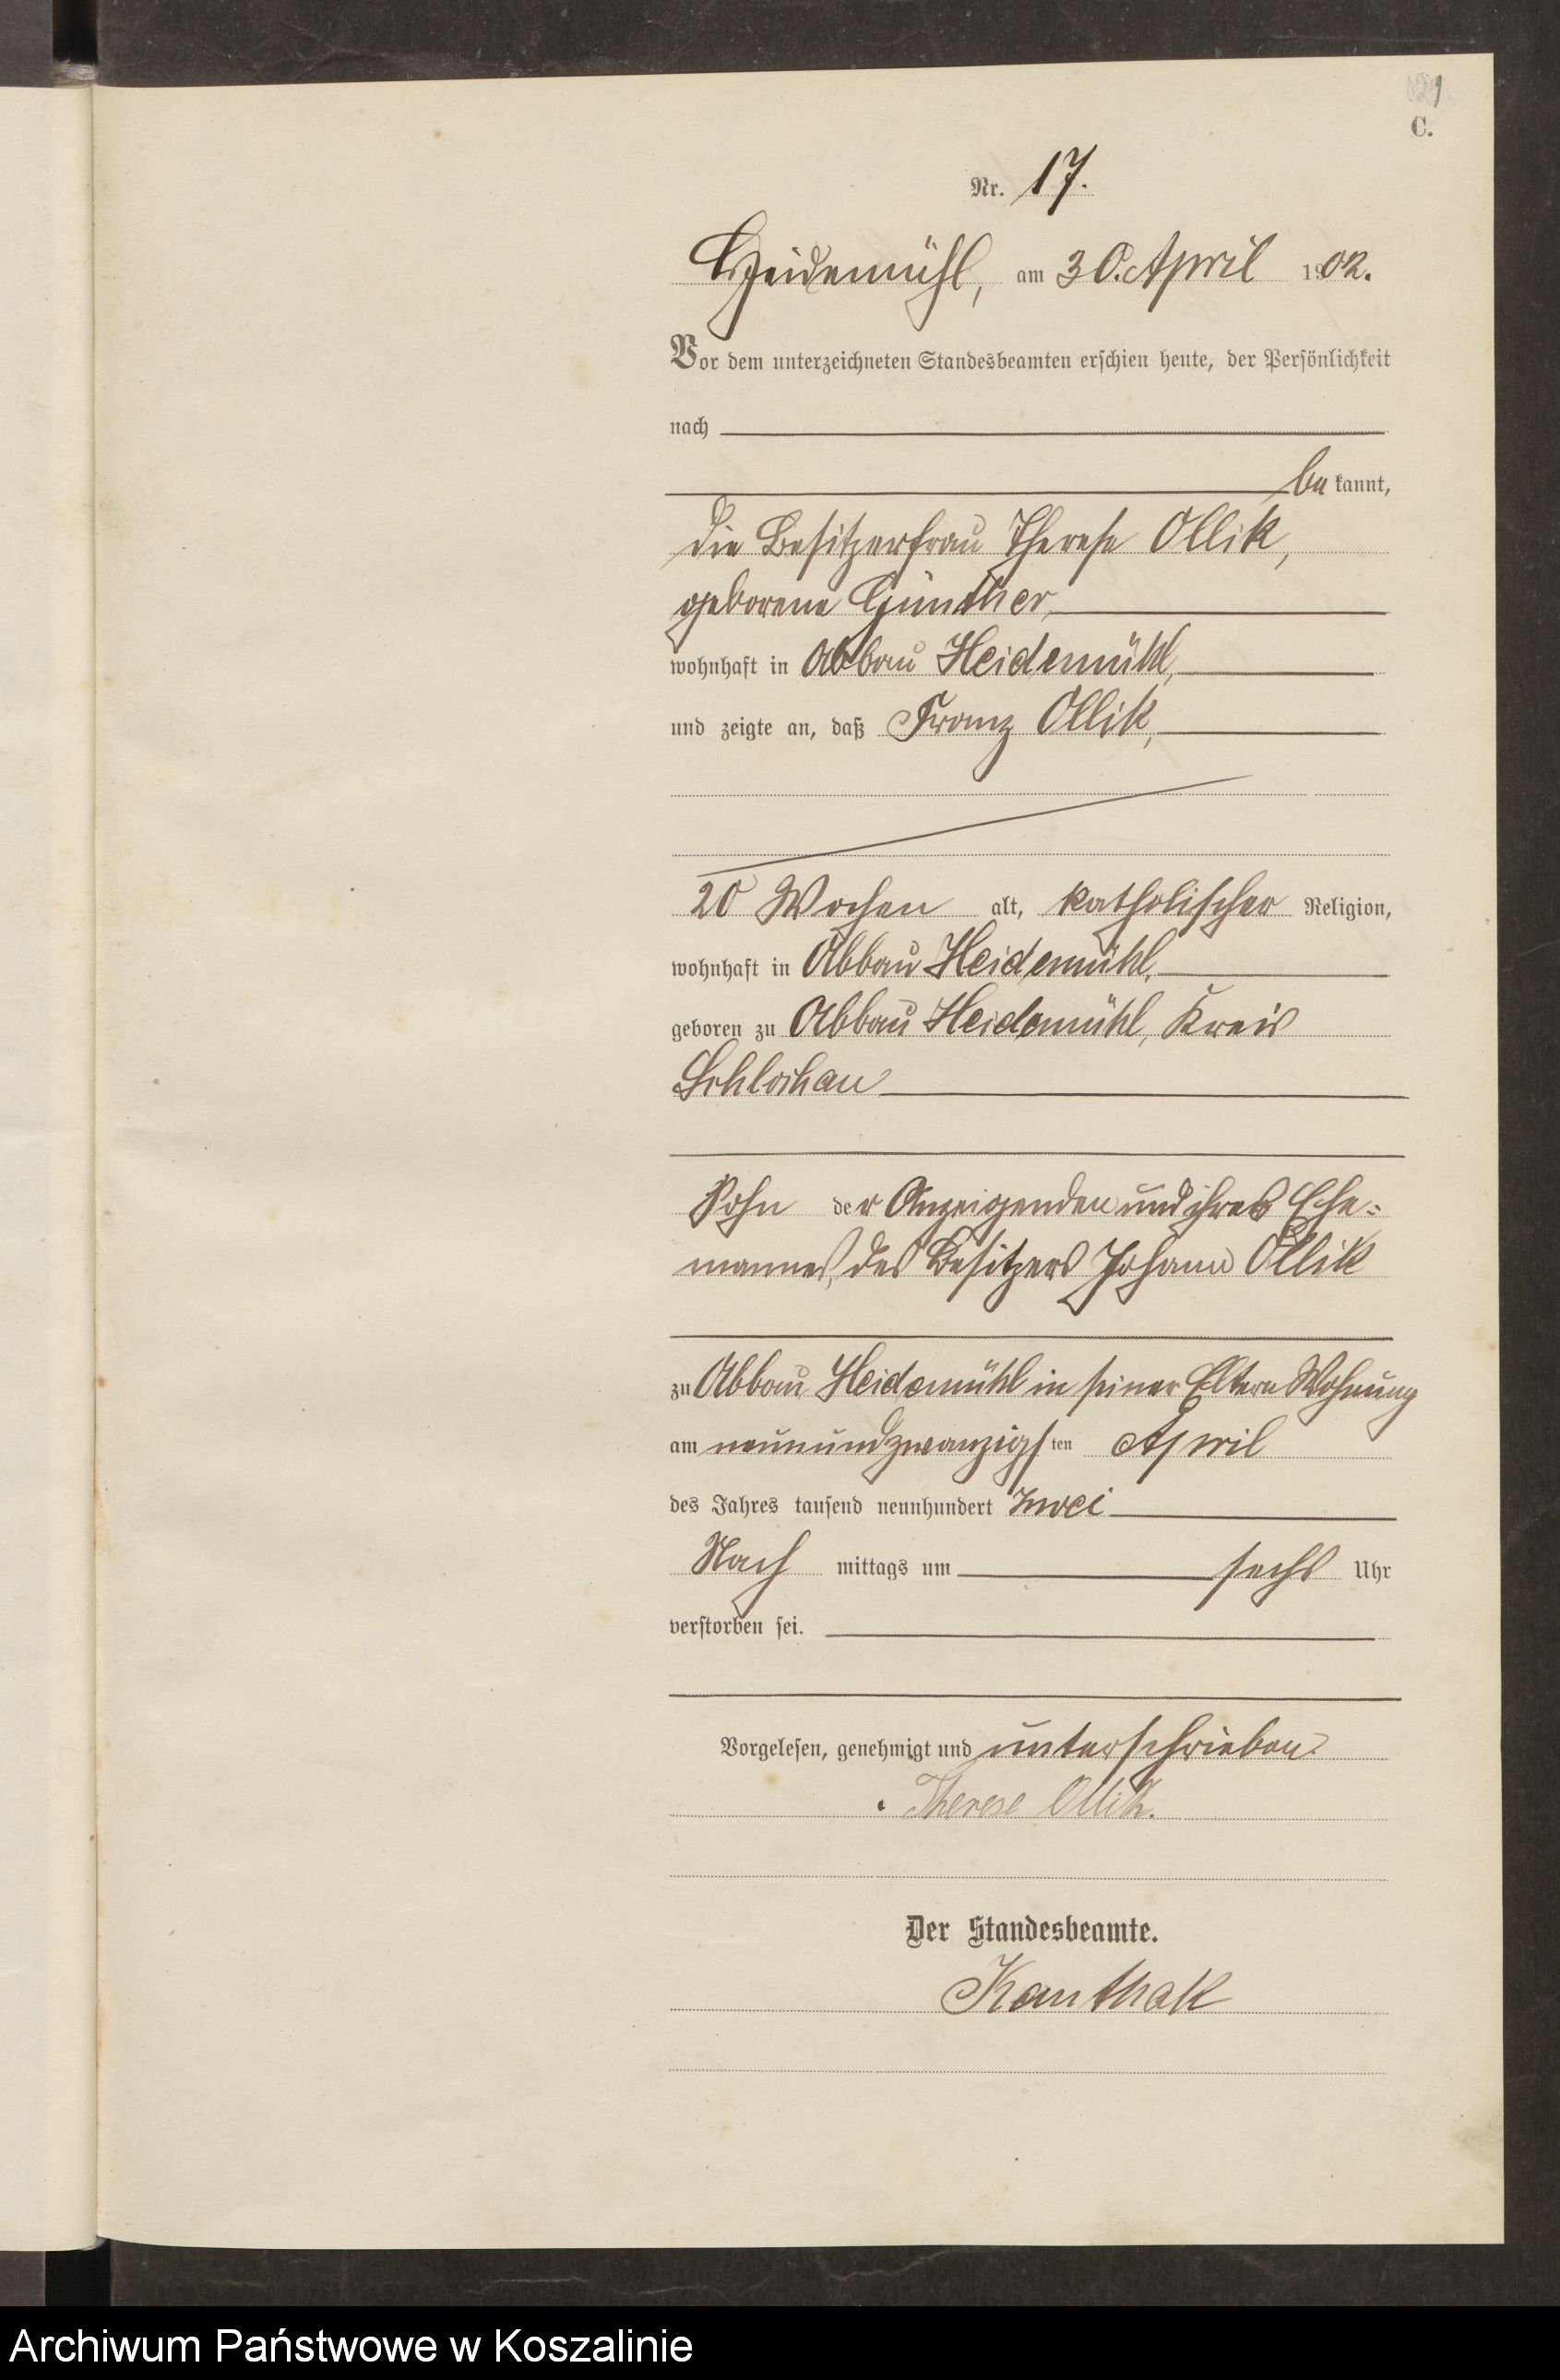 C.
Nr. 17.
Heidemühl, am 30. April 1902.
Vor dem unterzeichneten Standesbeamten erschien heute, der Persönlichkeit
nach
be kannt,
die Besitzerfrau Therese Ollik,
geborene Günther,
wohnhaft in Abbau Heidemühl,
und zeigte an, daß Franz Ollik,
20 Wochen alt, katholischer Religion,
wohnhaft in Abbau Heidemühl,
geboren zu Abbau Heidemühl, Kreis
Schlochau
Sohn der Anzeigenden und ihres Ehe=
mannes, des Besitzers Johann Ollik
zu Abbau Heidemühl in seiner Eltern Wohnung
am neunundzwanzigsten April
des Jahres tausend neunhundert zwei
Nach mittags um sechs Uhr
verstorben sei.
Vorgelesen, genehmigt und unterschrieben.
Therese Ollik.
Der Standesbeamte.
Kanthak
Archiwum Państwowe w Koszalinie